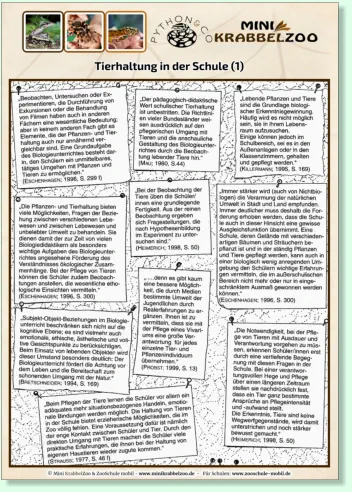 PYTHON & CO
MINI
KRABBELZOO
Tierhaltung in der Schule (1)
„Beobachten, Untersuchen oder Ex-
perimentieren, die Durchführung von
Exkursionen oder die Behandlung
von Filmen haben auch in anderen
Fächern eine wesentliche Bedeutung;
aber in keinem anderen Fach gibt es
Elemente, die der Pflanzen- und Tier-
haltung auch nur annähernd ver-
gleichbar sind. Eine Grundaufgabe
des Biologieunterrichtes besteht dar-
in, den Schülern ein unmittelbares,
tätiges Umgehen mit Pflanzen und
Tieren zu ermöglichen.“
(ESCHENHAGEN; 1996, S. 299 f)
„Der pädagogisch-didaktische
Wert schulischer Tierhaltung
ist unbestritten. Die Richtlini-
en vieler Bundesländer wei-
sen ausdrücklich auf den
pflegerischen Umgang mit
Tieren und die anschauliche
Gestaltung des Biologieunter-
richtes durch die Beobach-
tung lebender Tiere hin.“
(MAU; 1980, S.44)
„Lebende Pflanzen und Tiere
sind die Grundlage biologi-
scher Erkenntnisgewinnung.
Häufig wird es nicht möglich
sein, sie in ihrem Lebens-
raum aufzusuchen.
Einige können jedoch im
Schulbereich, sei es in den
Außenanlagen oder in den
Klassenzimmern, gehalten
und gepflegt werden.“
(KILLERMANN; 1995, S. 169)
„Die Pflanzen- und Tierhaltung bieten
viele Möglichkeiten, Fragen der Bezie-
hung zwischen verschiedenen Lebe-
wesen und zwischen Lebewesen und
unbelebter Umwelt zu behandeln. Sie
dienen damit der zur Zeit von vielen
Biologiedidaktikern als besonders
wichtige Aufgabe des Biologieunter-
richtes angesehene Förderung des
Verständnisses ökologischer Zusam-
menhänge. Bei der Pflege von Tieren
können die Schüler zudem Beobach-
tungen anstellen, die wesentliche etho-
logische Einsichten vermitteln.“
(ESCHENHAGEN; 1996, S. 300)
„Bei der Beobachtung der
Tiere üben die Schüler/
innen eine grundlegende
Fertigkeit. Aus der reinen
Beobachtung ergeben
sich Fragestellungen, die
nach Hypothesenbildung
im Experiment zu unter-
suchen sind.“
(HEIMERICH; 1998, S. 50)
„Immer stärker wird (auch von Nichtbio-
logen) die Verarmung der natürlichen
Umwelt in Stadt und Land empfunden.
Immer deutlicher muss deshalb die For-
derung erhoben werden, dass die Schu-
le auch in dieser Hinsicht eine gewisse
Ausgleichsfunktion übernimmt. Eine
Schule, deren Gelände mit verschieden-
artigen Bäumen und Sträuchern be-
pflanzt ist und in der ständig Pflanzen
und Tiere gepflegt werden, kann auch in
einer biologisch wenig anregenden Um-
gebung den Schülern wichtige Erfahrun-
gen vermitteln, die im außerschulischen
Bereich nicht mehr oder nur in einge-
schränktem Ausmaß gewonnen werden
können.“
(ESCHENHAGEN; 1996, S. 300)
„...denn es gibt kaum
eine bessere Möglich-
keit, die durch Medien
bestimmte Umwelt der
Jugendlichen durch
Realerfahrungen zu er-
gänzen. Ihnen ist zu
vermitteln, dass sie mit
der Pflege eines Vivari-
ums eine große Ver-
antwortung für jedes
einzelne Tier- und
Pflanzenindividuum
übernehmen.“
(PROBST; 1999, S. 13)
„Subjekt-Objekt-Beziehungen im Biologie-
unterricht beschränken sich nicht auf die
kognitive Ebene; es sind vielmehr auch
emotionale, ethische, ästhetische und volitive
Gesichtspunkte zu berücksichtigen.
Beim Einsatz von lebenden Objekten wird
dieser Umstand besonders deutlich: Der
Biologieunterricht fördert die Achtung vor
dem Leben und die Bereitschaft zum
schonenden Umgang mit der Natur.“
(BRETSCHNEIDER; 1994, S. 169)
„Die Notwendigkeit, bei der Pfle-
ge von Tieren mit Ausdauer und
Verantwortung vorgehen zu müs-
sen, erkennen Schüler/innen erst
durch eine vertiefende Begeg-
nung mit diesen Fragen in der
Schule. Bei einer verantwor-
tungsvollen Hege und Pflege
über einen längeren Zeitraum
stellen sie nachdrücklich fest,
dass ein Tier ganz bestimmte
Ansprüche an Pflegeintensität
und -aufwand stellt.
Die Erkenntnis, Tiere sind keine
Wegwerfgegenstände, wird damit
unterstrichen und noch stärker
bewusst gemacht.“
(HEIMERICH; 1998, S. 50)
„Beim Pflegen der Tiere lernen die Schüler vor allem ein
adäquates mehr situationsbezogenes Handeln, emotio-
nale Bindungen werden möglich. Die Haltung von Tieren
in der Schule bietet erzieherische Möglichkeiten, die im
Zoo völlig fehlen. Eine Voraussetzung dafür ist nämlich
der enge Kontakt zwischen Schüler und Tier. Durch den
direkten Umgang mit Tieren machen die Schüler viele
praktische Erfahrungen, die ihnen bei der Haltung von
eigenen Haustieren wieder zugute kommen.“
(STRAUSS; 1977, S. 46 f)
© Mini KrabbelZoo & ZooSchule mobil - www.minikrabbelzoo.de - Für Schulen: www.zooschule-mobil.de